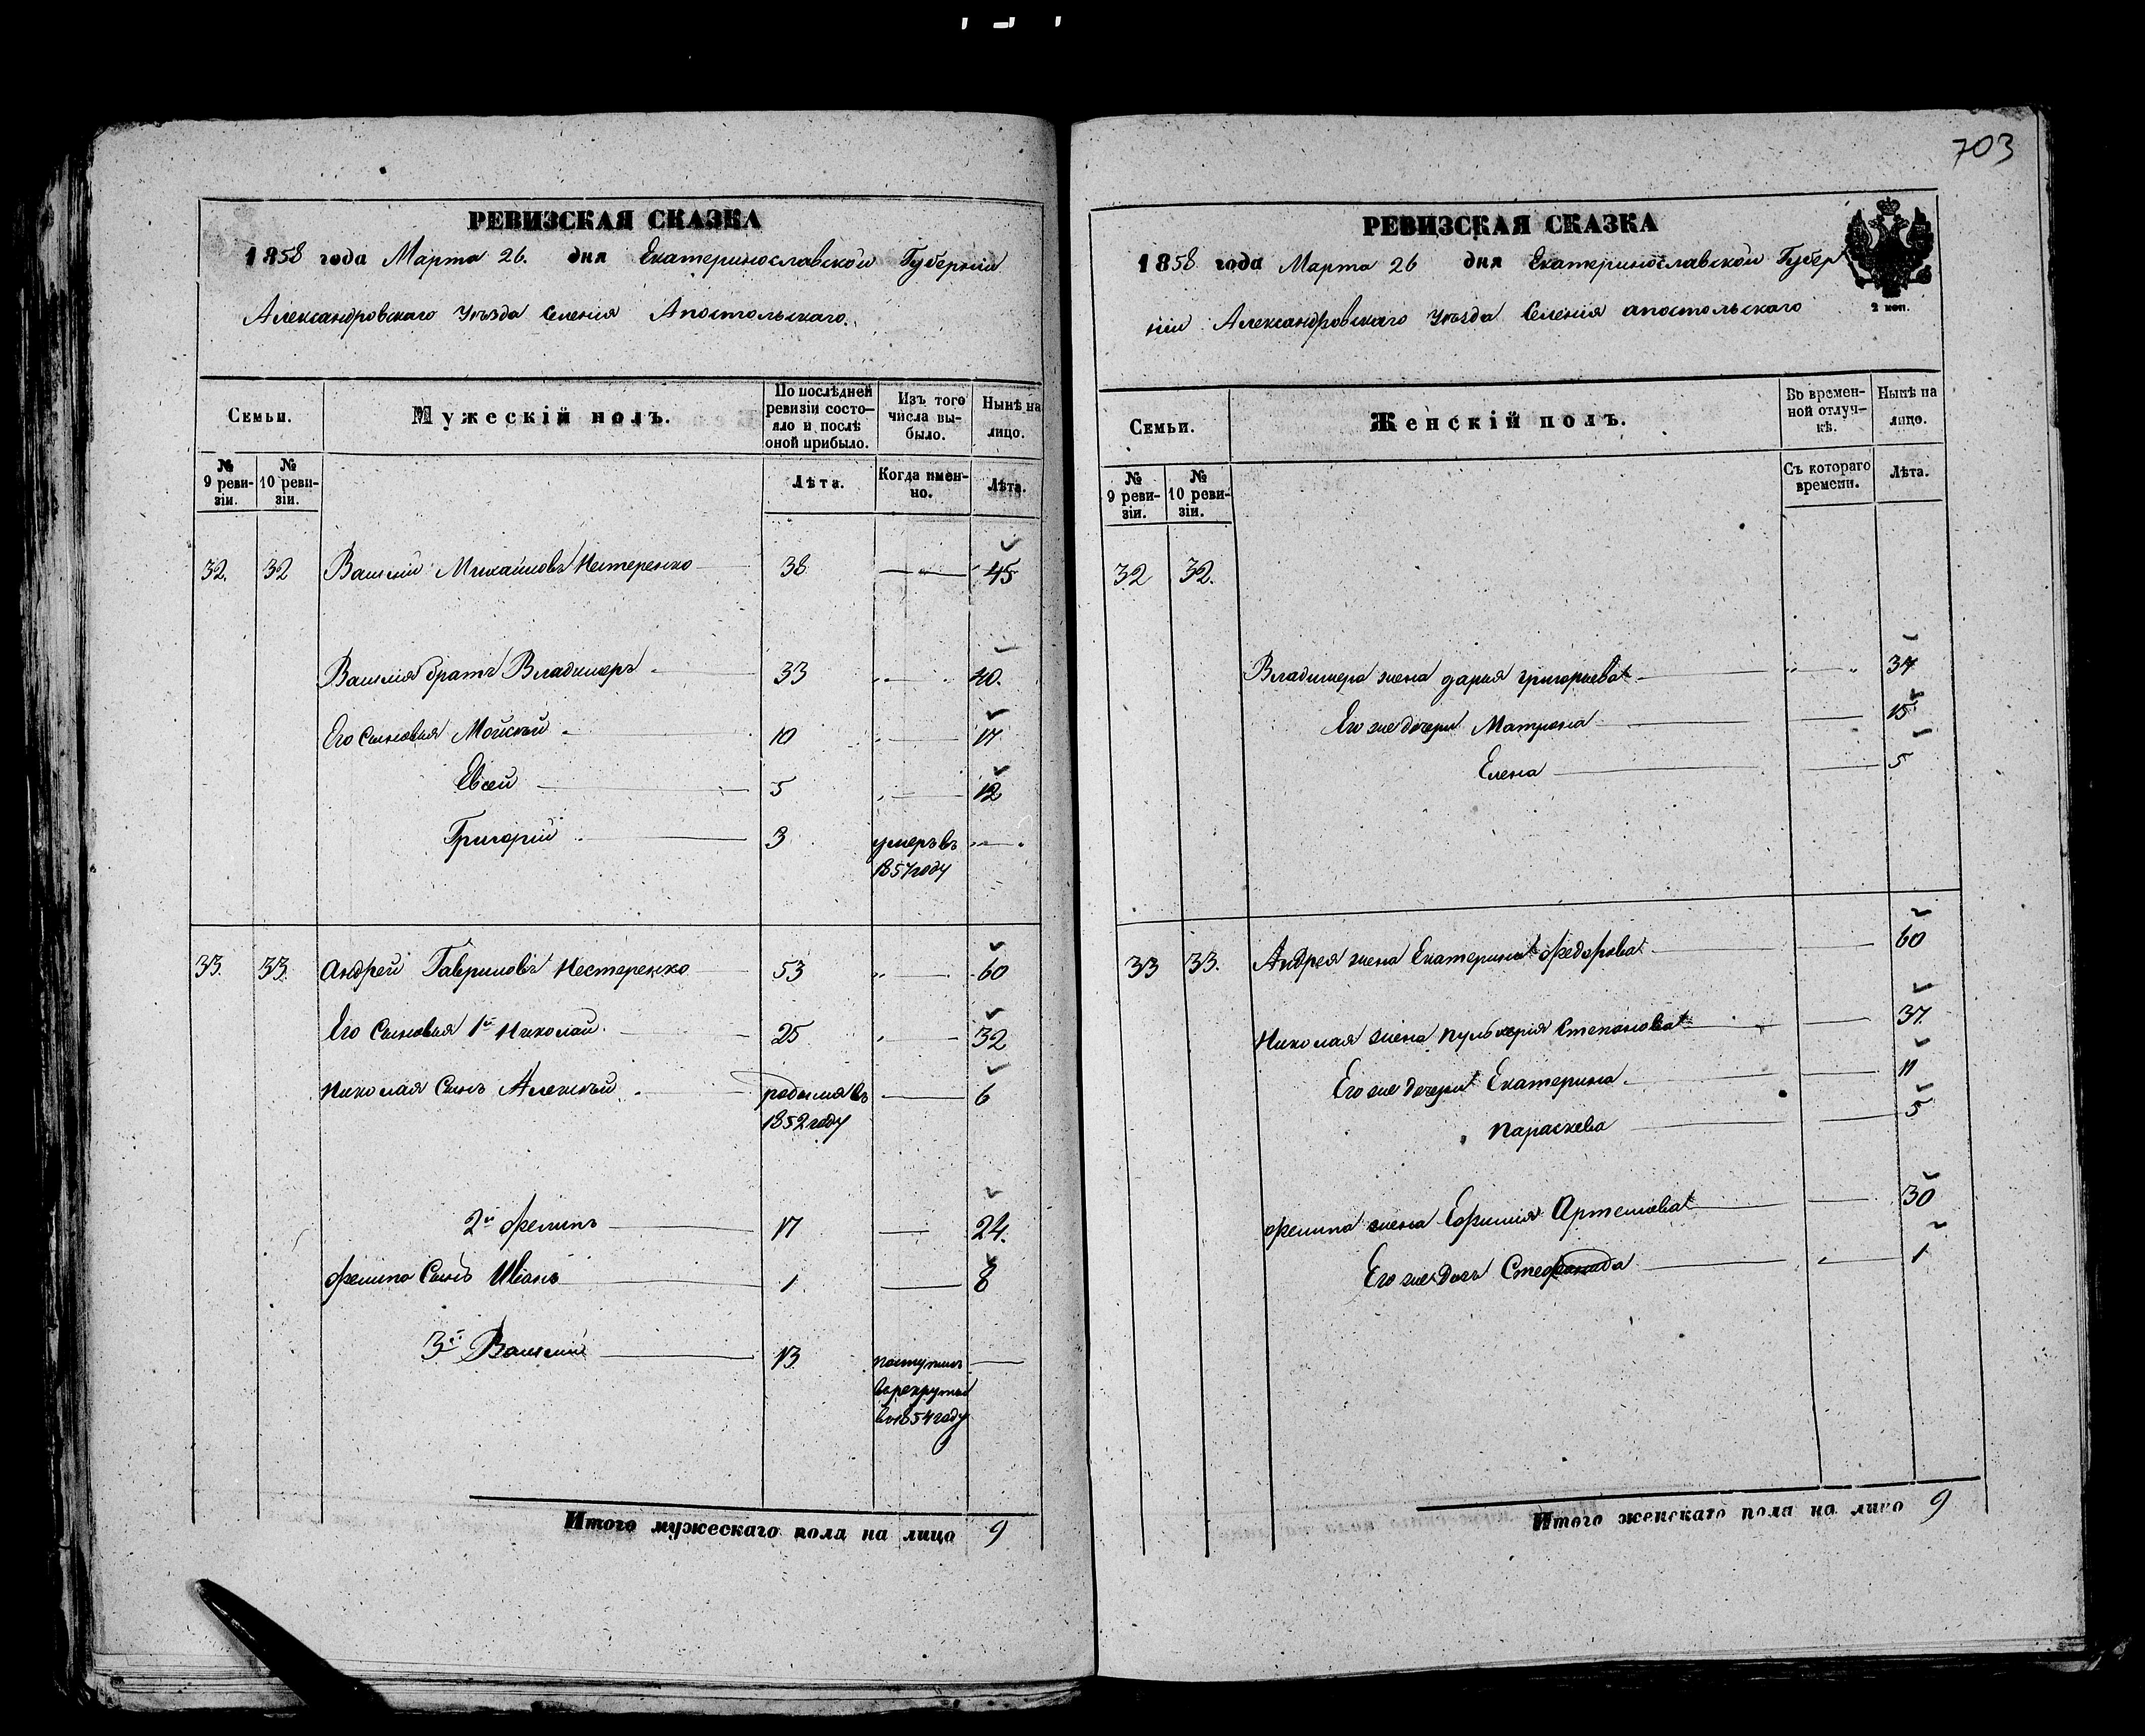 703
РЕВИЗСКАЯ СКАЗКА
1858 года Марта 26. дня Екатеринославской Губерніи
Александровскаго Уѣзда Селенія Апостольскаго.
Семьи.
Мужескій полъ.
По послѣдней ревизіи состо-
яло и послѣ
оной прибыло.
Изъ того
числа вы-
было.
Нынѣ на
лицо.
№
9 реви-
зіи.
№
10 реви-
зіи.
Лѣта.
Когда имен-
но.
Лѣта.
32. 32 Василій Михайловъ Нестеренко 38 45
Василія братъ Владимеръ 33 40.
Его сыновья Мойсѣй 10 17
Евсей 5 12
Григорій 3 умеръ въ
1857 году
33. 33. Андрей Гавриловъ Нестеренко 53 60
Его сыновья 1й Николай. 25 32
Николая сынъ Алексѣй родился въ 6
1852 году
2й Филипъ 17 24.
Филипа Сынъ Иванъ 1. 8
3й Василій 13 поступилъ
въ рекруты
въ 1854 году
Итого мужескаго пола на лицо 9
РЕВИЗСКАЯ СКАЗКА
1858 года Марта 26 дня Екатеринославской Губер
ніи Александровскаго Уѣзда Селенія апостольскаго
2 коп.
Семьи.
Женскій полъ.
Въ времен-
ной отлуч-
кѣ.
Нынѣ на
лицо.
№
9 реви-
зіи.
№
10 реви-
зіи.
Съ котораго
времени.
Лѣта.
32 32.
Владимера жена дарья григорьева 37
Его же дочери Матрона 15
Елена 5
33 33. Андрея жена Екатерина Федорова 60
Николая жена пульхерія Степанова 37.
Его же дочери Екатерина. 11
параскева 5
Филипа жена Ефимія Артемова 30
Его же дочь Стефанида 1
Итого женскаго пола на лицо 9